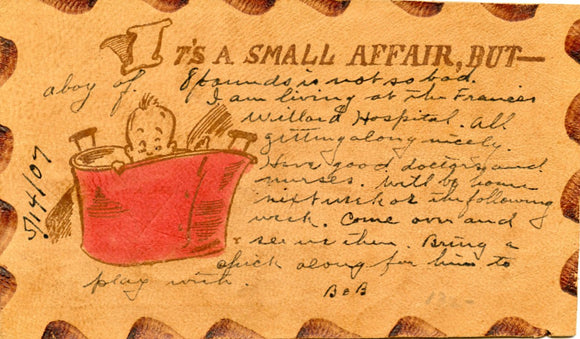 IT'S A SMALL AFFAIR, BUT—
a boy of 8 pounds is not so bad.
I am living at the Frances
Willard Hospital. All
getting along nicely.
Have good doctors and
nurses. Will be home
next week or the following
week. Come over and
see us then. Bring a
chick along for him to
play with.
BoB
5/14/07